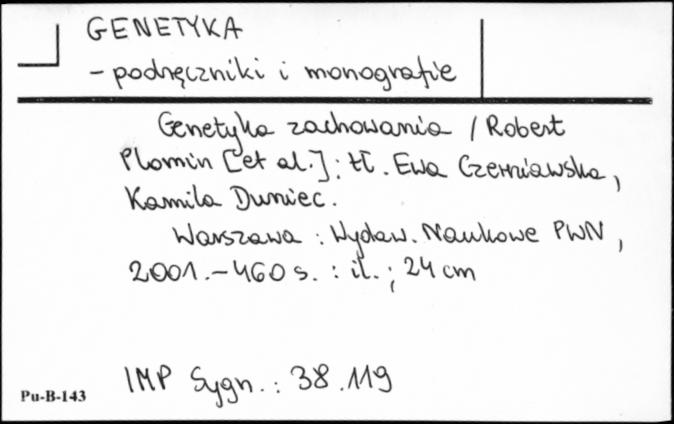 GENETYKA
- podręczniki i monografie
Genetyka zachowania / Robert
Plomin [et al.] ; tł. Ewa Czerniawska,
Kamila Duniec.
Warszawa : Wydaw. Naukowe PWN,
2001. - 460 s. : il. ; 24 cm
IMP Sygn. : 38.119
Pu-B-143